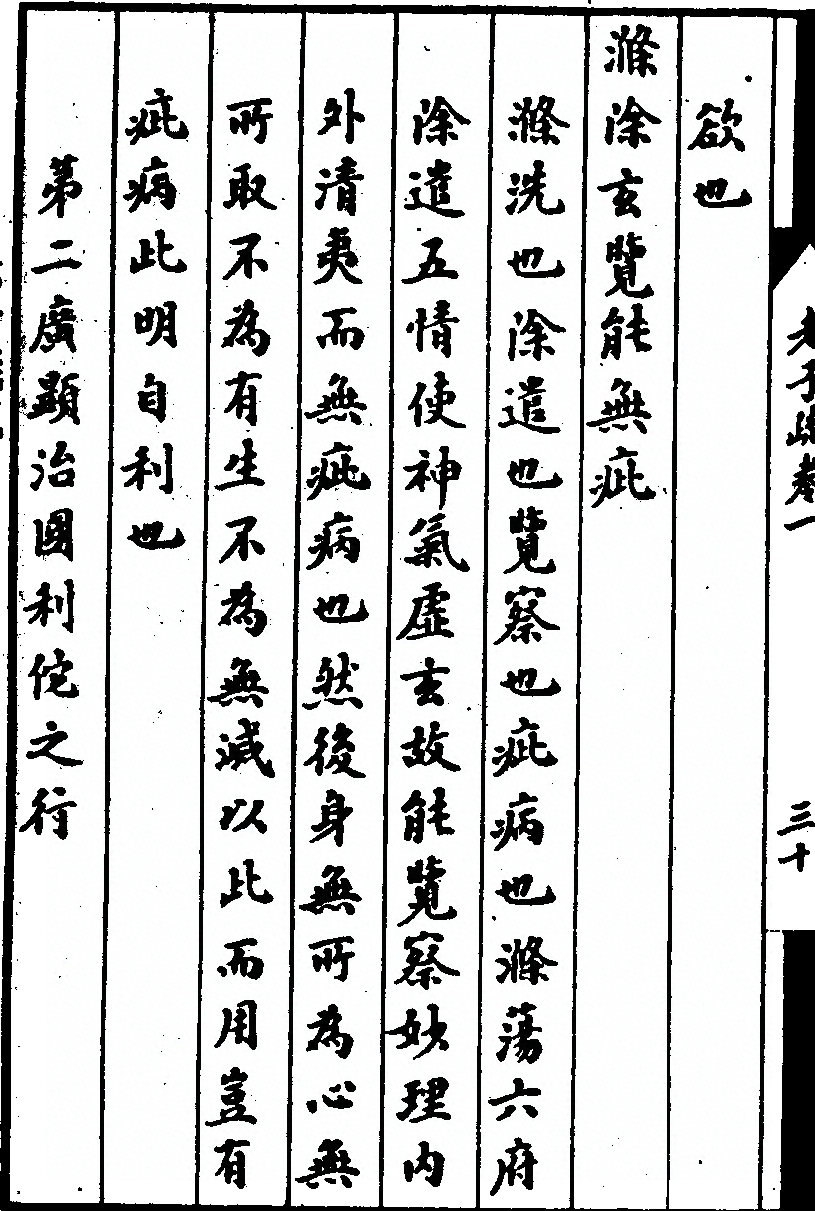 老子疏卷一
三十
欲也
滌除玄覽能無疵
滌洗也除遣也覽察也疵病也滌蕩六府
除遣五情使神氣虛玄故能覽察妙理内
外清夷而無疵病也然後身無所為心無
所取不為有生不為無減以此而用豈有
疵病此明自利也
第二廣顯治國利佗之行